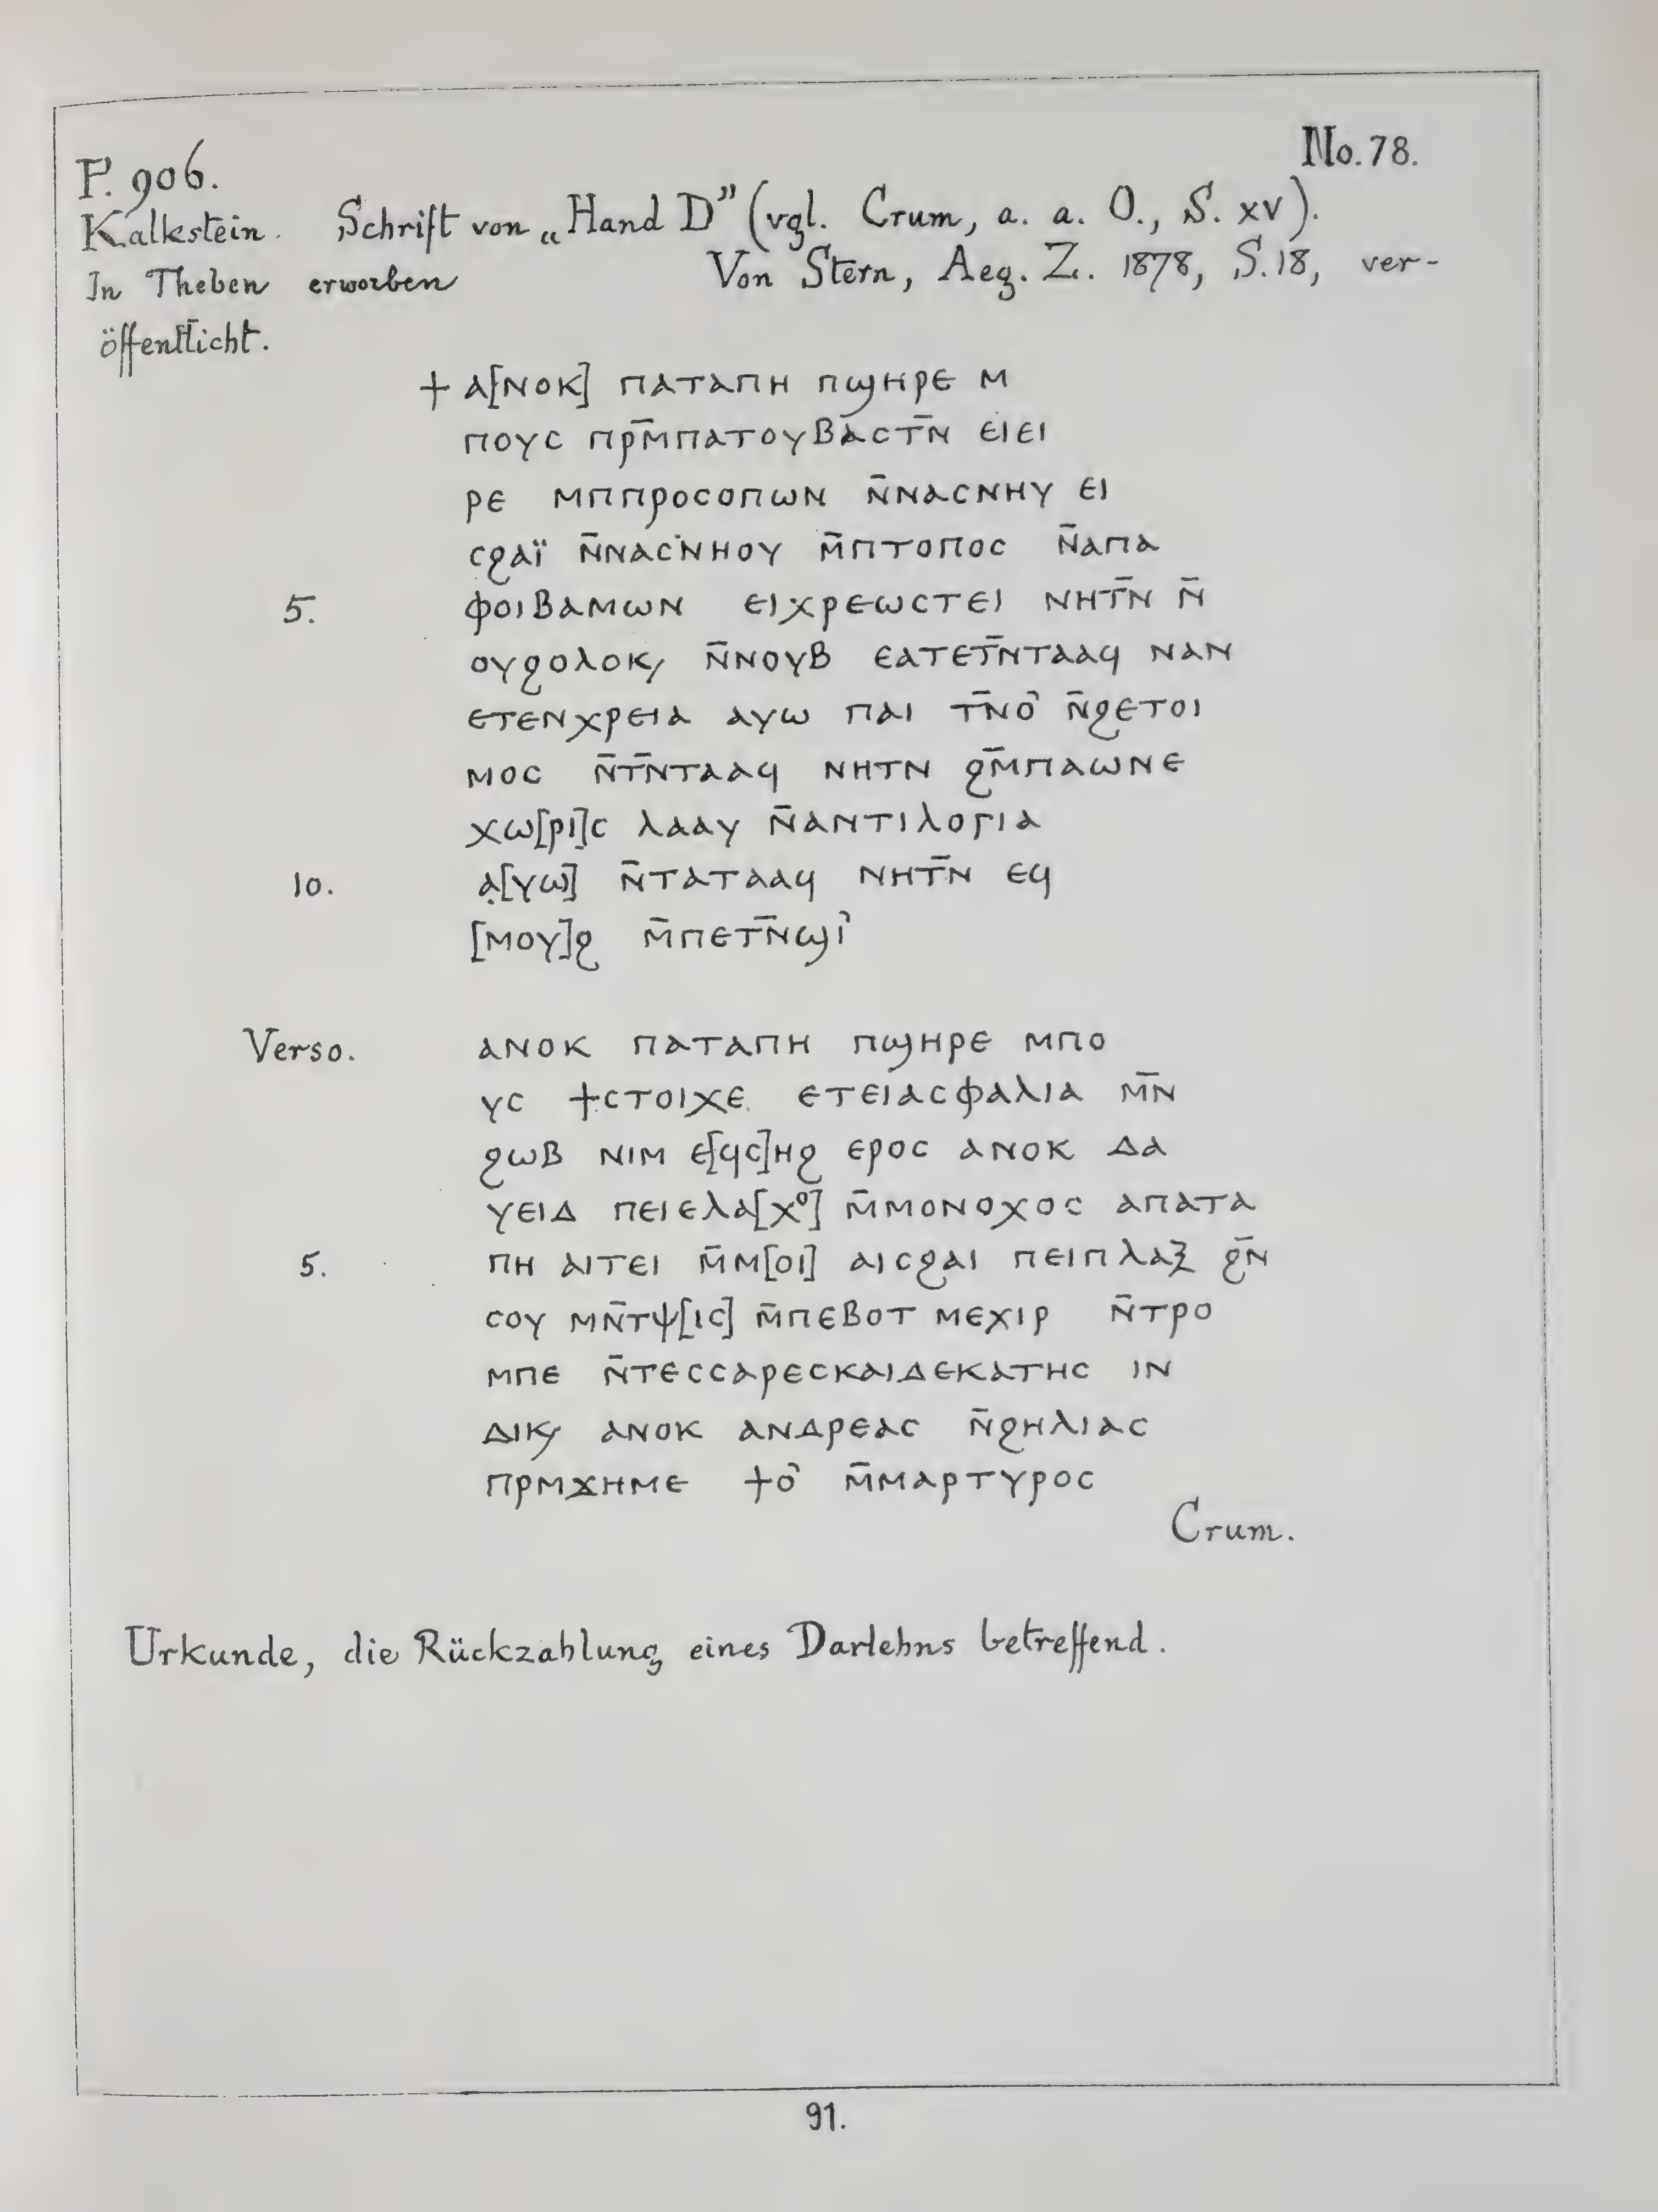 No. 78.
P. 906.
Kalkstein. Schrift von „Hand D” (vgl. Crum, a. a. O., S. xv).
In Theben erworben Von Stern, Aeg. Z. 1878, S. 18, ver-
öffentlicht.
ϯ ⲁ[ⲛⲟⲕ] ⲡⲁⲧⲁⲡⲏ ⲡϣⲏⲣⲉ ⲙ
ⲡⲟⲩⲥ ⲡⲣⲙ̄ⲡⲁⲧⲟⲩⲃⲁⲥⲧⲛ̄ ⲉⲓⲉⲓ
ⲣⲉ ⲙⲡⲡⲣⲟⲥⲟⲡⲱⲛ ⲛ̄ⲛⲁⲥⲛⲏⲩ ⲉⲓ
ⲥϩⲁⲓ̈ ⲛ̄ⲛⲁⲥⲛⲏⲟⲩ ⲙ̄ⲡⲧⲟⲡⲟⲥ ⲛ̄ⲁⲡⲁ
5. ⲫⲟⲓⲃⲁⲙⲱⲛ ⲉⲓⲭⲣⲉⲱⲥⲧⲉⲓ ⲛⲏⲧⲛ̄ ⲛ̄
ⲟⲩϩⲟⲗⲟⲕ/ ⲛ̄ⲛⲟⲩⲃ ⲉⲁⲧⲉⲧⲛ̄ⲧⲁⲁϥ ⲛⲁⲛ
ⲉⲧⲉⲛⲭⲣⲉⲓⲁ ⲁⲩⲱ ⲡⲁⲓ ⲧⲛ̄ⲟ̀ ⲛ̄ϩⲉⲧⲟⲓ
ⲙⲟⲥ ⲛ̄ⲧⲛ̄ⲧⲁⲁϥ ⲛⲏⲧⲛ ϩⲙ̄ⲡⲁⲱⲛⲉ
ⲭⲱ[ⲣⲓ]ⲥ ⲗⲁⲁⲩ ⲛ̄ⲁⲛⲧⲓⲗⲟⲅⲓⲁ
10. ⲁ̣[ⲩⲱ] ⲛ̄ⲧⲁⲧⲁⲁϥ ⲛⲏⲧⲛ̄ ⲉϥ
[ⲙⲟⲩ]ϩ ⲙ̄ⲡⲉⲧⲛ̄ϣⲓ̀
Verso. ⲁⲛⲟⲕ ⲡⲁⲧⲁⲡⲏ ⲡϣⲏⲣⲉ ⲙⲡⲟ
ⲩⲥ ϯⲥⲧⲟⲓⲭⲉ ⲉⲧⲉⲓⲁⲥⲫⲁⲗⲓⲁ ⲙⲛ̄
ϩⲱⲃ ⲛⲓⲙ ⲉ[ϥⲥ]ⲏϩ ⲉⲣⲟⲥ ⲁⲛⲟⲕ ⲇⲁ
ⲩⲉⲓⲇ ⲡⲉⲓⲉⲗⲁ[ⲭⁱ⁰] ⲙ̄ⲙⲟⲛⲟⲭⲟⲥ ⲁⲡⲁⲧⲁ
5. ⲡⲏ ⲁⲓⲧⲉⲓ ⲙ̄ⲙ[ⲟⲓ] ⲁⲓⲥϩⲁⲓ ⲡⲉⲓⲡⲗⲁⲝ ϩⲛ̄
ⲥⲟⲩ ⲙⲛ̄ⲧⲯ[ⲓⲥ] ⲙ̄ⲡⲉⲃⲟⲧ ⲙⲉⲭⲓⲣ ⲛ̄ⲧⲣⲟ
ⲙⲡⲉ ⲛ̄ⲧⲉⲥⲥⲁⲣⲉⲥⲕⲁⲓⲇⲉⲕⲁⲧⲏⲥ ⲓⲛ
ⲇⲓⲕ/ ⲁⲛⲟⲕ ⲁⲛⲇⲣⲉⲁⲥ ⲛ̄ϩⲏⲗⲓⲁⲥ
ⲡⲣⲙϫⲏⲙⲉ ϯⲟ̀ ⲙ̄ⲙⲁⲣⲧⲩⲣⲟⲥ
Crum.
Urkunde, die Rückzahlung eines Darlehns betreffend.
91.